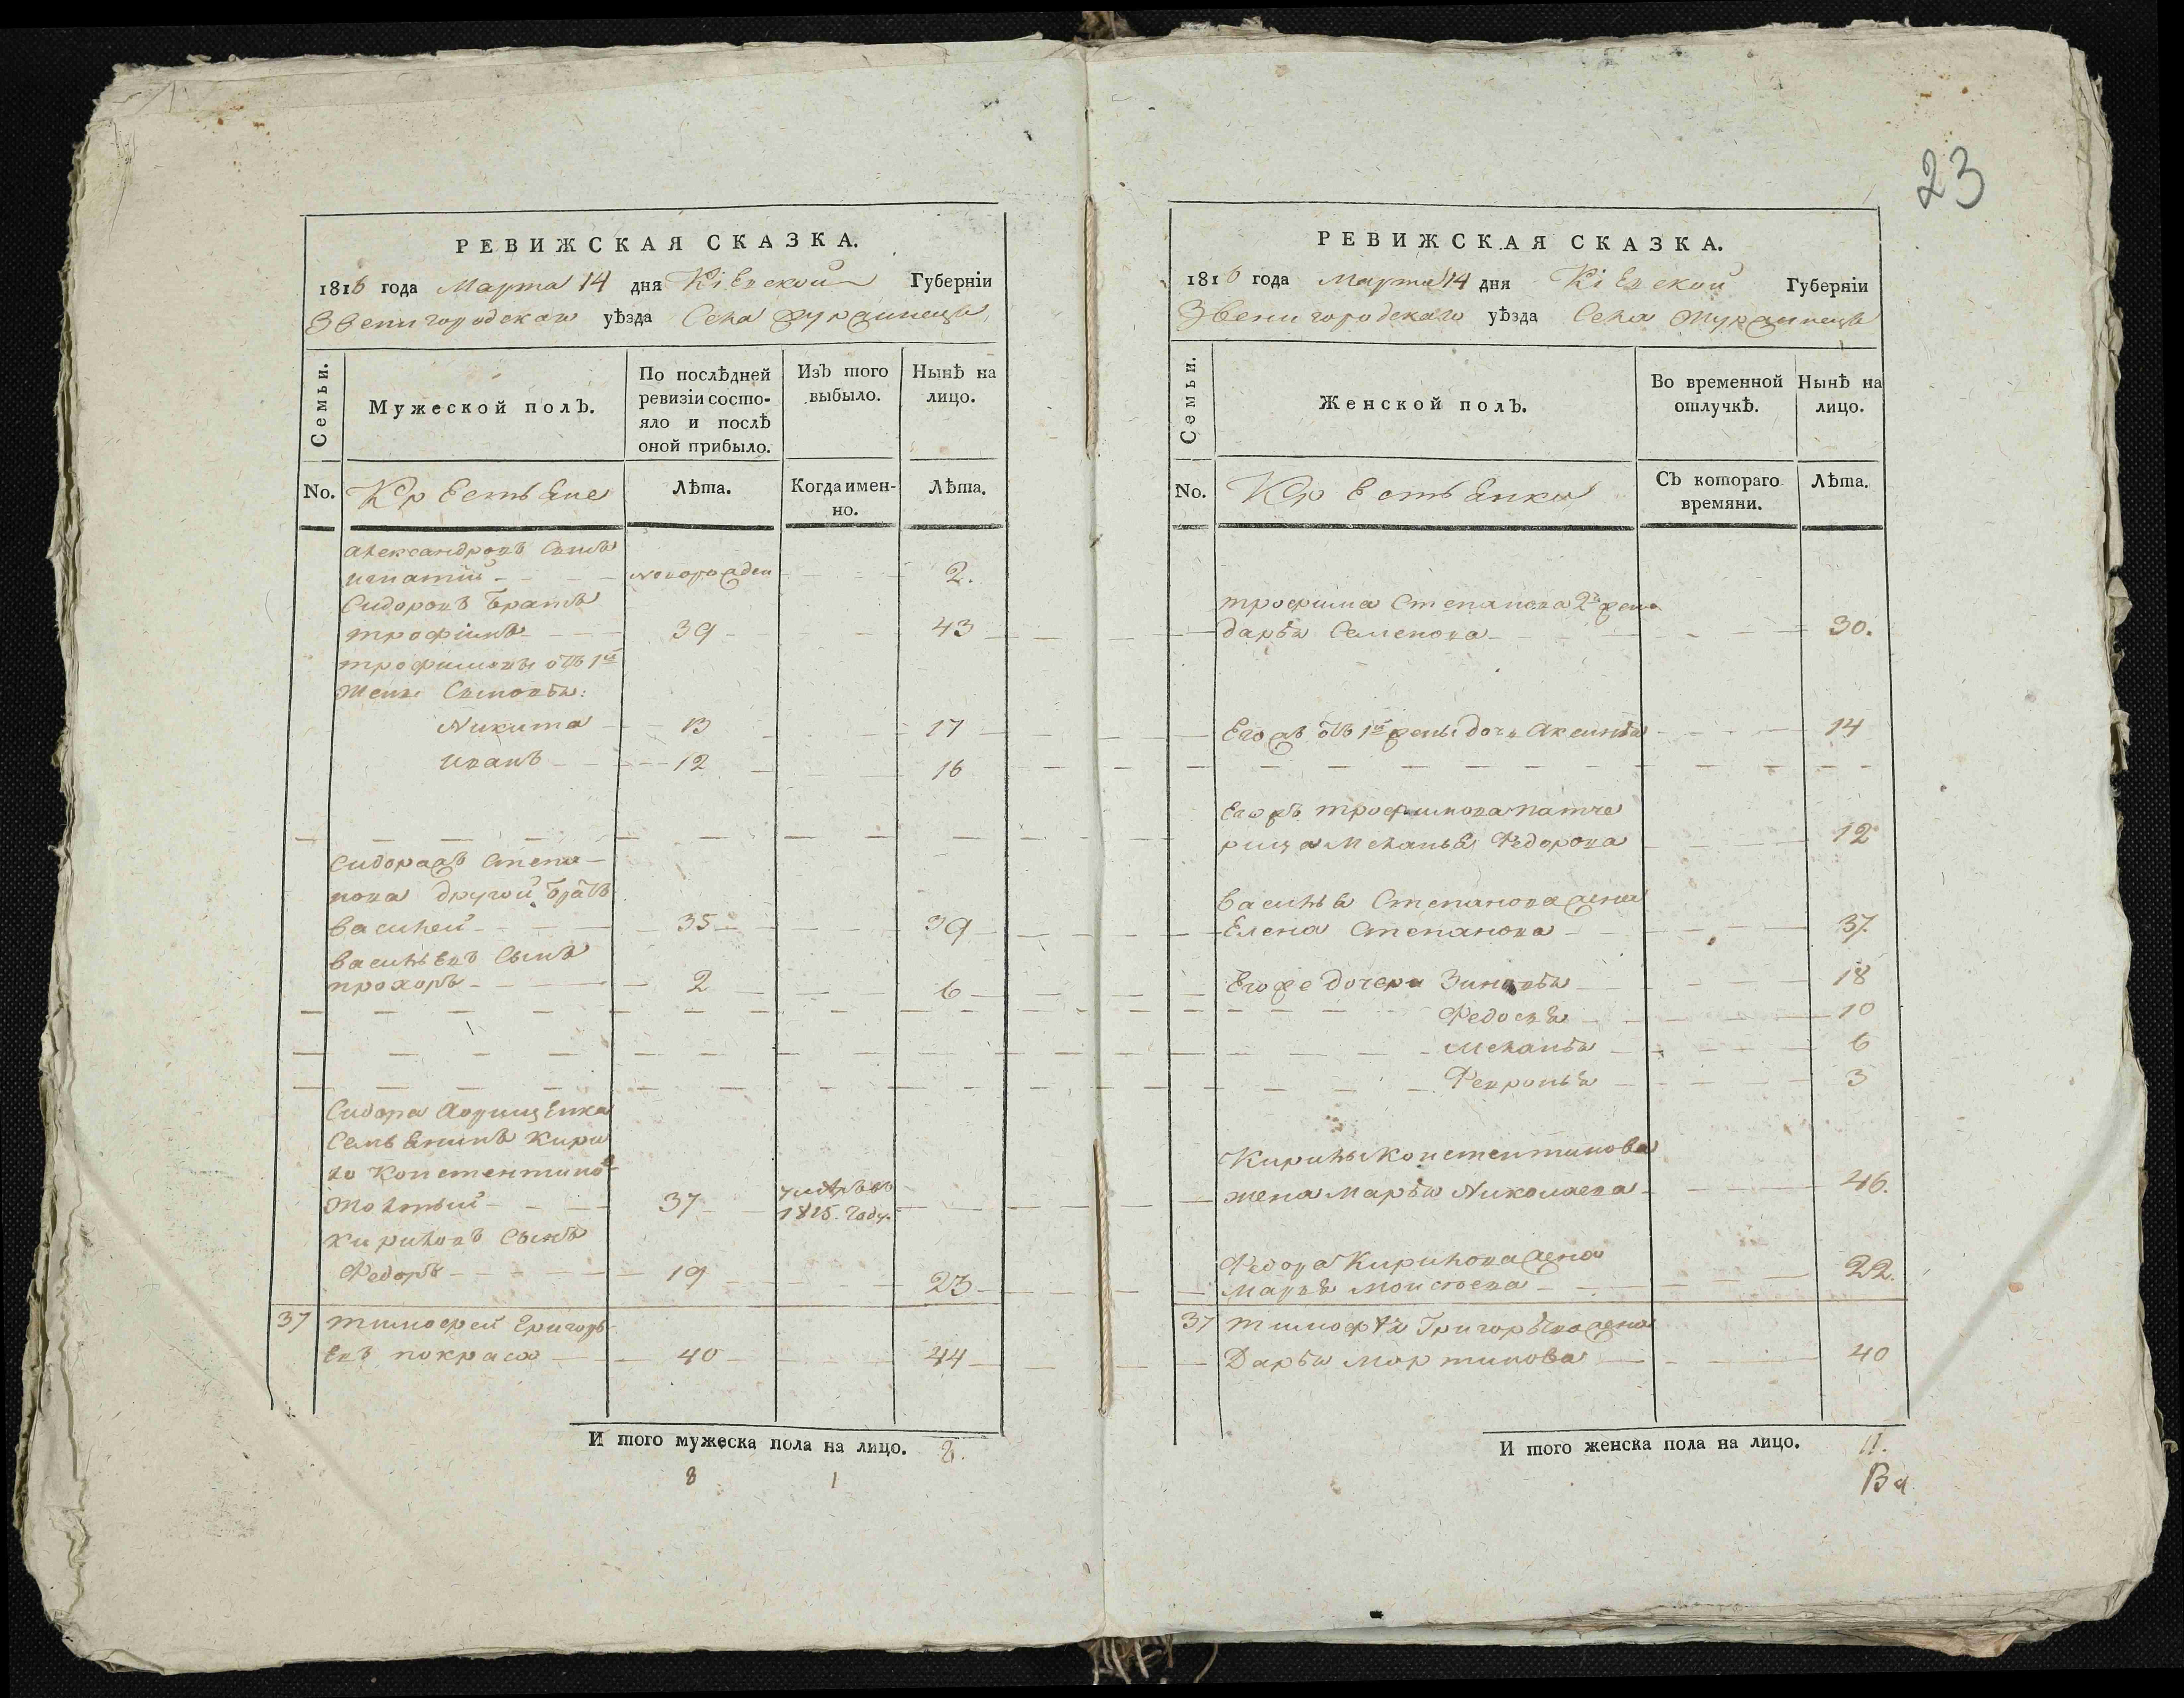 23
РЕВИЖСКАЯ СКАЗКА.
1816 года Марта 14 дня Кіевской Губерніи
Звенигородскаго уѣзда Села Журжинецъ
Семьи.
Мужеской полъ.
По послѣдней ревизіи состо-
яло и послѣ
оной прибыло.
Изъ того
выбыло.
Нынѣ на
лицо.
No.
Крестьяне
Лѣта.
Когда имен-
но.
Лѣта.
Александровъ Сынъ
Игнатій новорожден 2.
Сидоровъ братъ
Трофимъ 39 43
Трофимовы отъ 1й
жены Сыновья:
Никита 13 17
Иванъ 12 16
Сидора жъ Степа-
нова другой братъ
Василей 35 39
Васильевъ Сынъ
Прохоръ 2 6
Сидора
Семьянинъ Кири
ло Констентинов
Жолтый 37 умре въ
1815. году.
Кириловъ Сынъ
Федоръ 19 23
37 Тимофей Григорь
евъ покраса 40 44
И того мужеска пола на лицо. 8.
8 1
РЕВИЖСКАЯ СКАЗКА.
1816 года Марта 14 дня Кіевской Губерніи
Звенигородскаго уѣзда Села Журжинецъ
Семьи.
Женской полъ.
Во временной
отлучкѣ.
Нынѣ на
лицо.
No.
Крестьянки
Съ котораго
времяни.
Лѣта.
Трофима Степанова 2я жена
Дарья Семенова 30.
Его жъ отъ 1й жены дочь Аксинья 14
Его жъ Трофимова патче
рица Меланья Федорова 12
Василья Степанова жена
Елена Степанова 37.
Его же дочери Зиновья 18
Федосья 10
Меланья 6
Февронья 3
Кирилы Констентинова
жена Марья Николаева 46.
Федора Кирилова жена
Марья Моисеева 22.
37 Тимофея Григорьева жена
Дарья Мартинова 40
И того женска пола на лицо. 11.